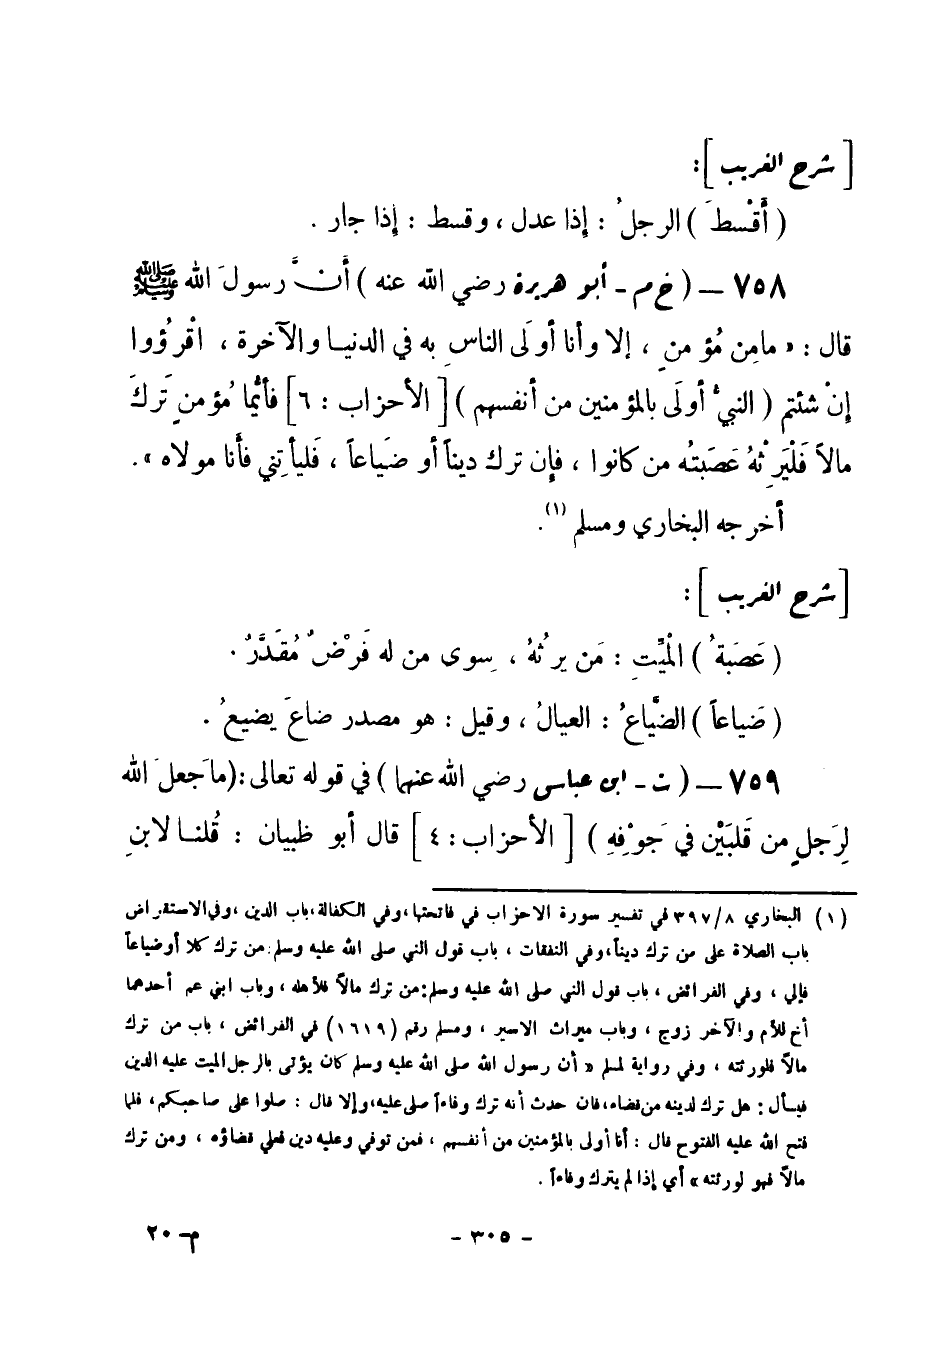 [ شرح الغريب ] :
( أَقْسطَ ) الرجلُ : إذا عدل ، وقسط : إذا جار .
٧٥٨ – ( خ م - أبو هريرة رضي الله عنه ) أَنَّ رسولَ الله ﷺ
قال : « مامِن مُؤمنٍ ، إلا وأنا أولَى الناسِ به في الدنيا والآخرة ، اقْرؤُوا
إنْ شئتم ( النبيُّ أولَى بالمؤمنين من أنفسهم ) [ الأحزاب : ٦ ] فأيُّما مُؤمنٍ تَركَ
مالاً فَلْيَرِثْهُ عَصَبتُه من كانوا ، فإن ترك ديناً أو ضَياعاً ، فَليأتِني فأنا مولاه » .
أخرجه البخاري ومسلم (١) .
[ شرح الغريب ] :
( عَصَبةُ ) المْيِّتِ : مَن يرثُهُ ، سِوى من له فَرْضٌ مُقَدَّرٌ .
( ضَياعاً ) الضَّياعُ : العيالُ ، وقيل : هو مصدر ضاعَ يضيعُ .
٧٥٩ – ( ت - ابن عباس رضي الله عنهما ) في قوله تعالى : ( ماَجعلَ الله
لِرَجلٍ من قَلبَيْن في جَوْفِهِ ) [ الأحزاب : ٤ ] قال أبو ظبيان : قُلنا لابنِ
(١) البخاري ٣٩٧/٨ في تفسير سورة الاحزاب في فاتحتها ، وفي الكفالة ، باب الدين ، وفي الاستقراض
باب الصلاة على من ترك ديناً ، وفي النفقات ، باب قول النبي صلى الله عليه وسلم : من ترك كلا أو ضياعاً
فإلي ، وفي الفرائض ، باب قول النبي صلى الله عليه وسلم : من ترك مالاً فلأهله ، وباب ابني عم أحدهما
أخ للأم والآخر زوج ، وباب ميراث الاسير ، ومسلم رقم (١٦١٩) في الفرائض ، باب من ترك
مالاً فلورثته ، وفي رواية لمسلم « أن رسول الله صلى الله عليه وسلم كان يؤتى بالرجل الميت عليه الدين
فيسأل : هل ترك لدينه من قضاء ، فان حدث أنه ترك وفاءاً صلى عليه ، وإلا قال : صلوا على صاحبكم ، فلما
فتح الله عليه الفتوح قال : أنا أولى بالمؤمنين من أنفسهم ، فمن توفي وعليه دين فعلي قضاؤه ، ومن ترك
مالاً فهو لورثته » أي إذا لم يترك وفاءاً .
- ٣٠٥ -
م – ٢٠